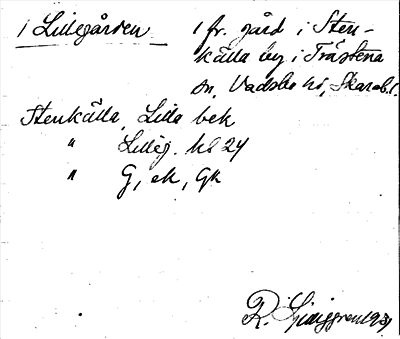 1 Lillegården
1 fr. gård i Sten-
källa by i Trästena
sn, Vadsbo hd, Skarab. l.
Stenkälla, Lilla bek
" Lilleg. hd 24
" G, ek, Gk
R. Ljunggren 1931